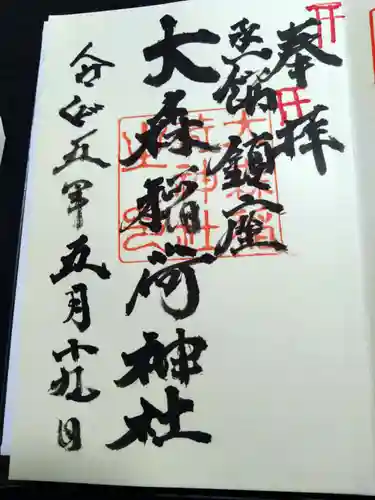 奉拝
凾館鎮座
大森稲荷神社
令和五年五月十九日
大森稲
荷神社
之印